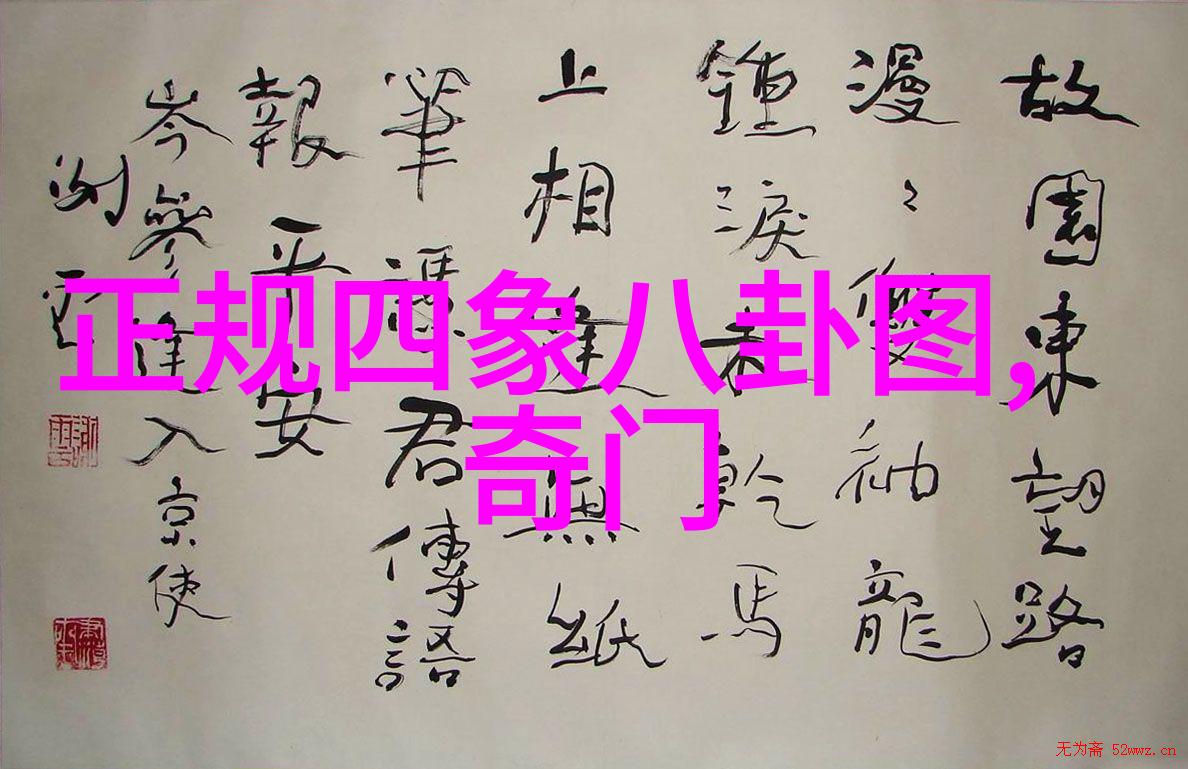 故園東望路
漫〻雙袖龍
鍾淚不乾馬
上相逢無紙
筆憑君傳語
報平安
岑參逢入京使
正规四象八卦图,
奇门
无为斋 52wwz.cn